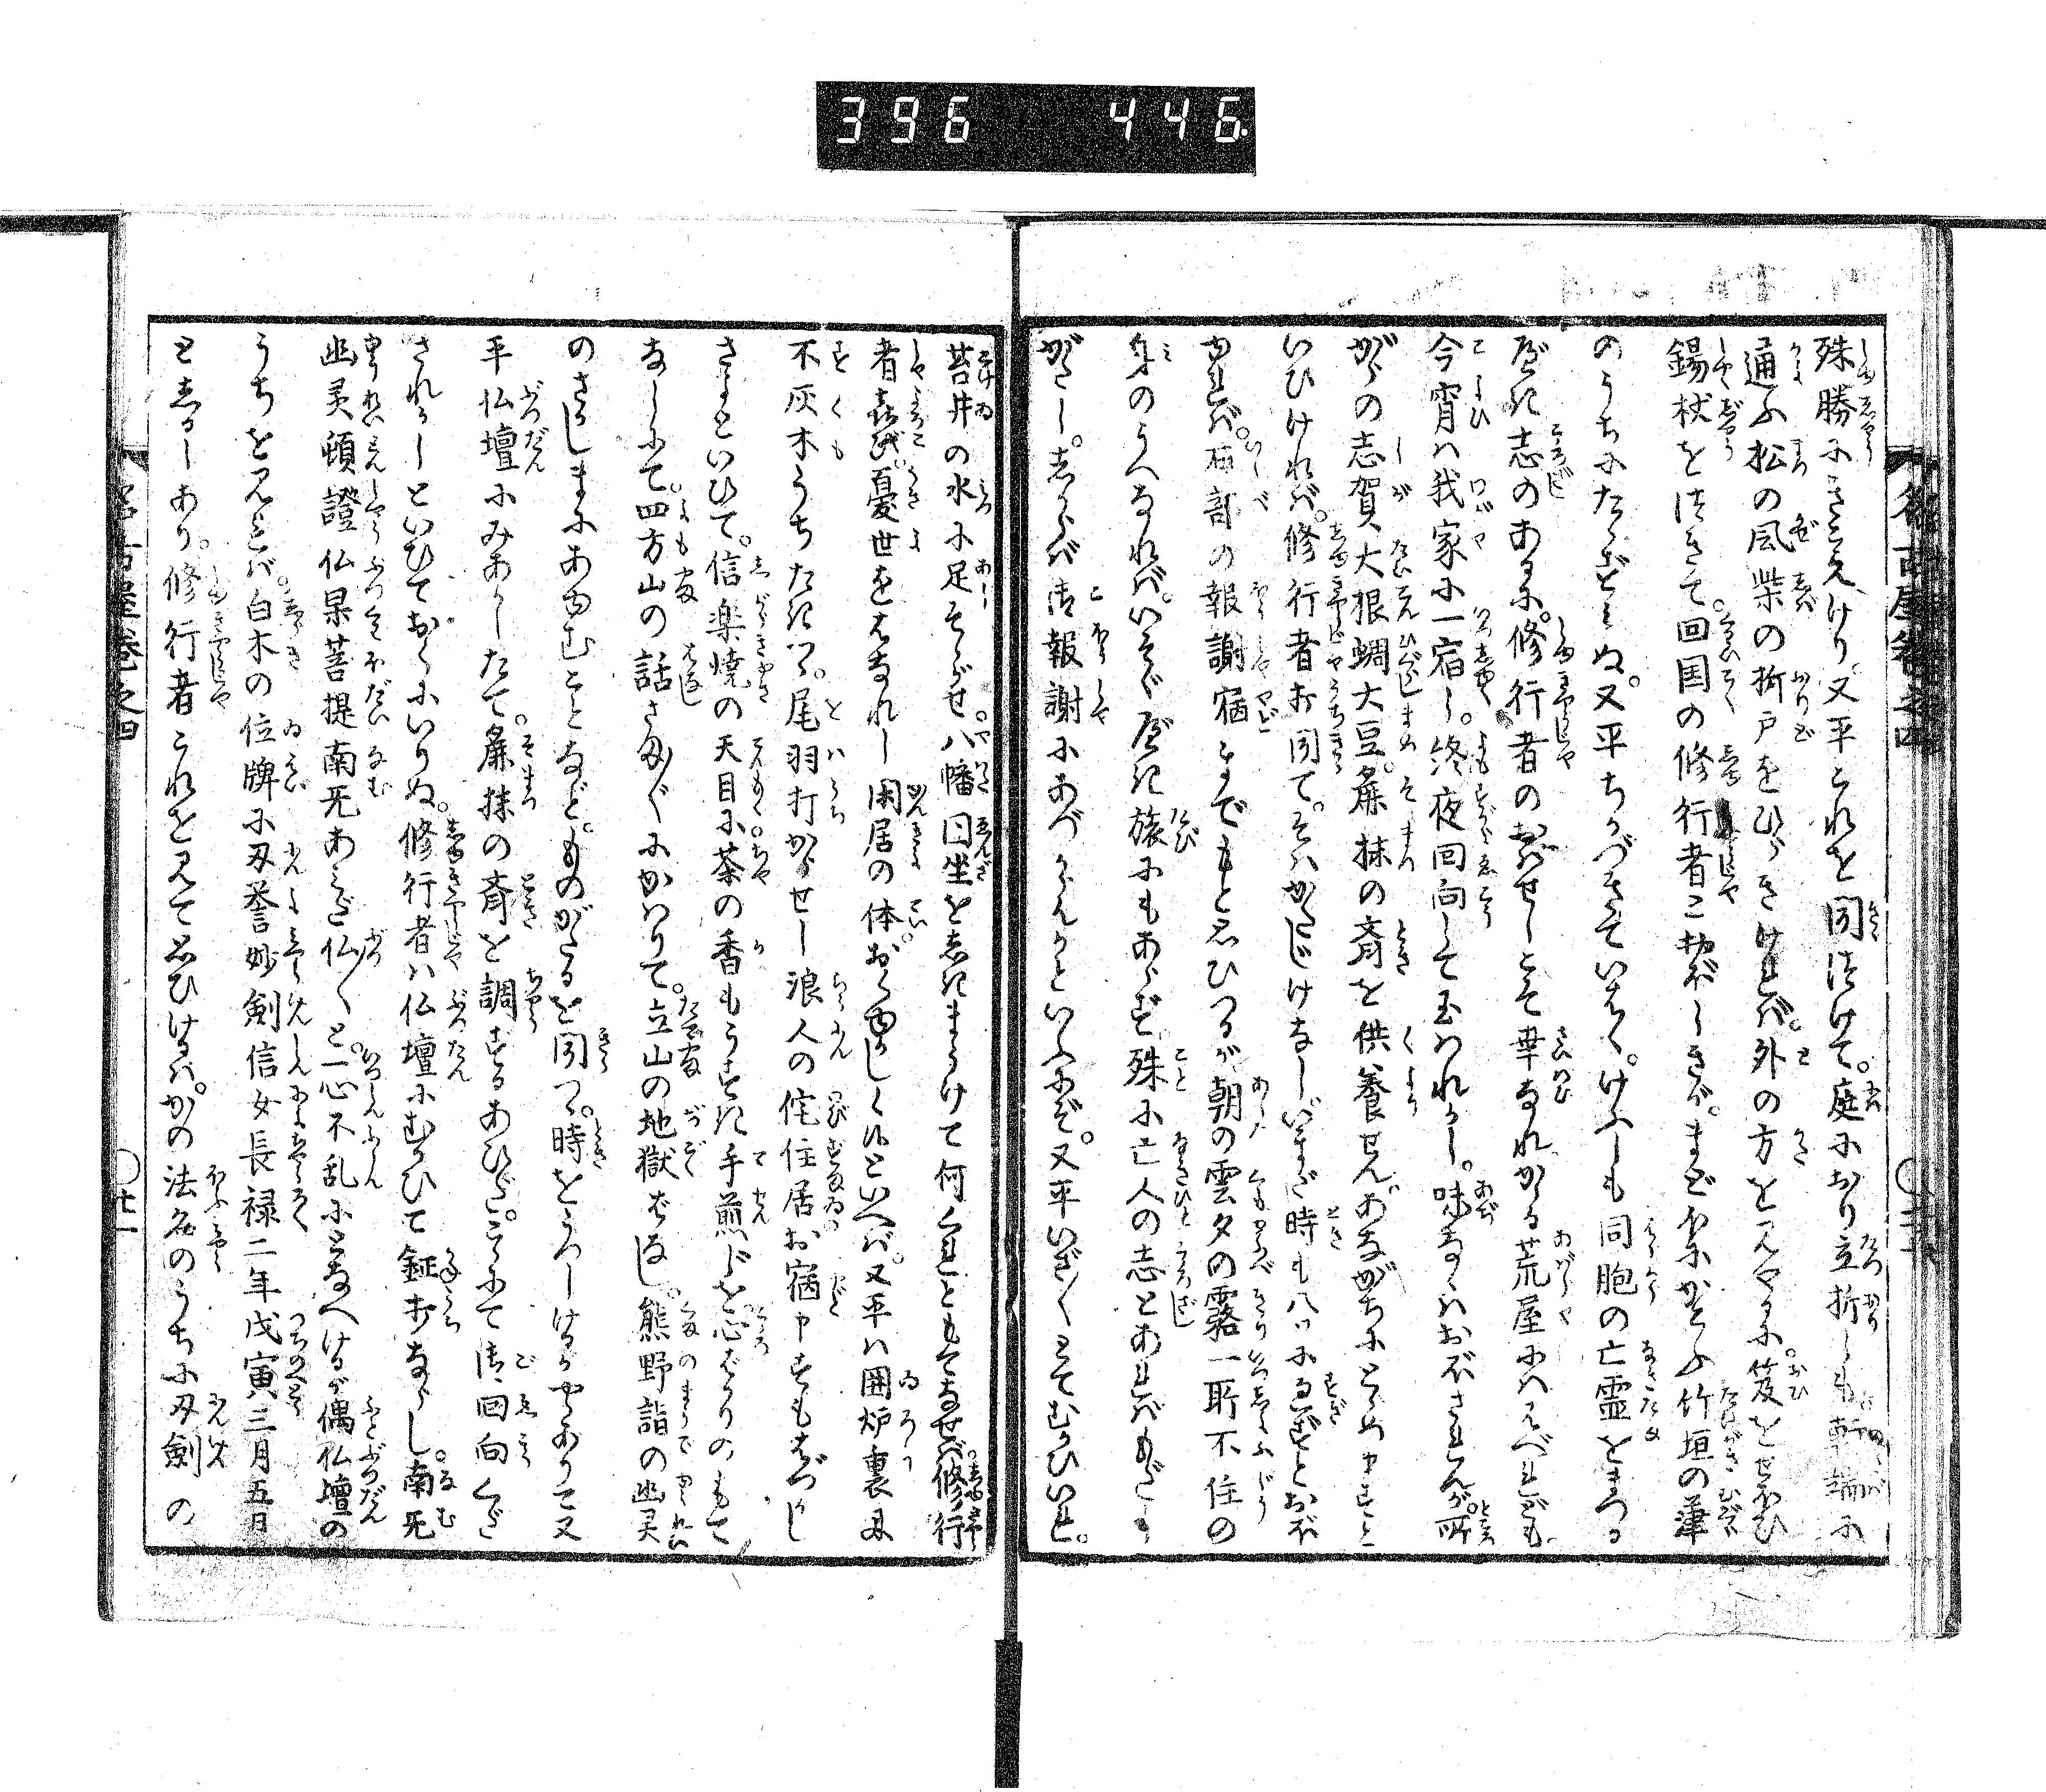 396 446
殊勝にきこえけり。又平これを聞つけて。庭におり立折しも軒端に
通ふ松の風柴の折戸をひらきければ。外の方を見やるに。笈をせおひ
錫杖をつきて。回国の修行者こゑかしきが。まどほにかこふ竹垣の
のうちにたゝずみぬ。又平ちかづきていはく。けふしも同胞の亡霊をまつる
志のあるに。修行者のおはせしこそ幸なれかゝる荒屋にハはべれども
今宵ハ我家に一宿し。終夜回向して玉ハれかし。味なくハおぼされんが。所
がらの志賀大根蜩大豆。麁抹の斎を供養せん。あながちにとゞめ申すと
いひければ。修行者打聞て。そハかたじけなし。いまだ時も八ツにすぎずとおぼ
ゆれば。一部の報謝宿までもと思ひつるが朝の雲夕の霧一所不住の
身のうへなれば。いそぐべき旅にもあらず殊に亡人の志とあればもだし
がたし。しからば御報謝にあづからんかといふにぞ。又平いざ〳〵とてむかひいれ。
名古屋巻之四
苔井の水に足そゝがせ。八幡円坐をしきまうけて何くれともてなせば。修行
者喜び。憂世をはなれし閑居の体。おくゆかしく候といへば。又平ハ囲炉裏に
不灰木うちたきつゝ。尾羽打からせし浪人の侘住居お宿申すもはづかし
さよといひて。信楽焼の天目に茶の香もうすき手煎じを。心ばかりのもて
なしにて。四方山の話さま〴〵にかハりて。立山の地獄ばなし。熊野詣の幽灵
のさかしまにあゆむことなど。ものがたるを聞つゝ。時をうつしけるがやゝありて又
平仏壇にみあかしたて。麁抹の斎を調するあひだ。こゝにて御回向くだ
されかしといひておくにいりぬ。修行者ハ仏壇にむかひて鉦打ならし。南无
幽灵頓證仏果菩提南无あみだ仏〳〵と。一心不乱にとなへけるが偶仏壇の
うちを見れば。白木の位牌に刃誉妙剣信女長禄二年戊寅三月五日
としるしあり。修行者これを見て思ひけるハ。かの法名のうちに刃剣の
名古屋巻之四
廿一